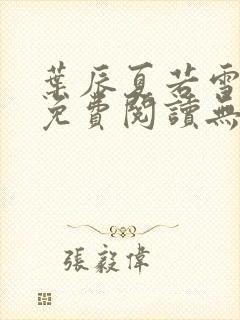 葉辰夏若雪
免費閱讀無
張毅偉